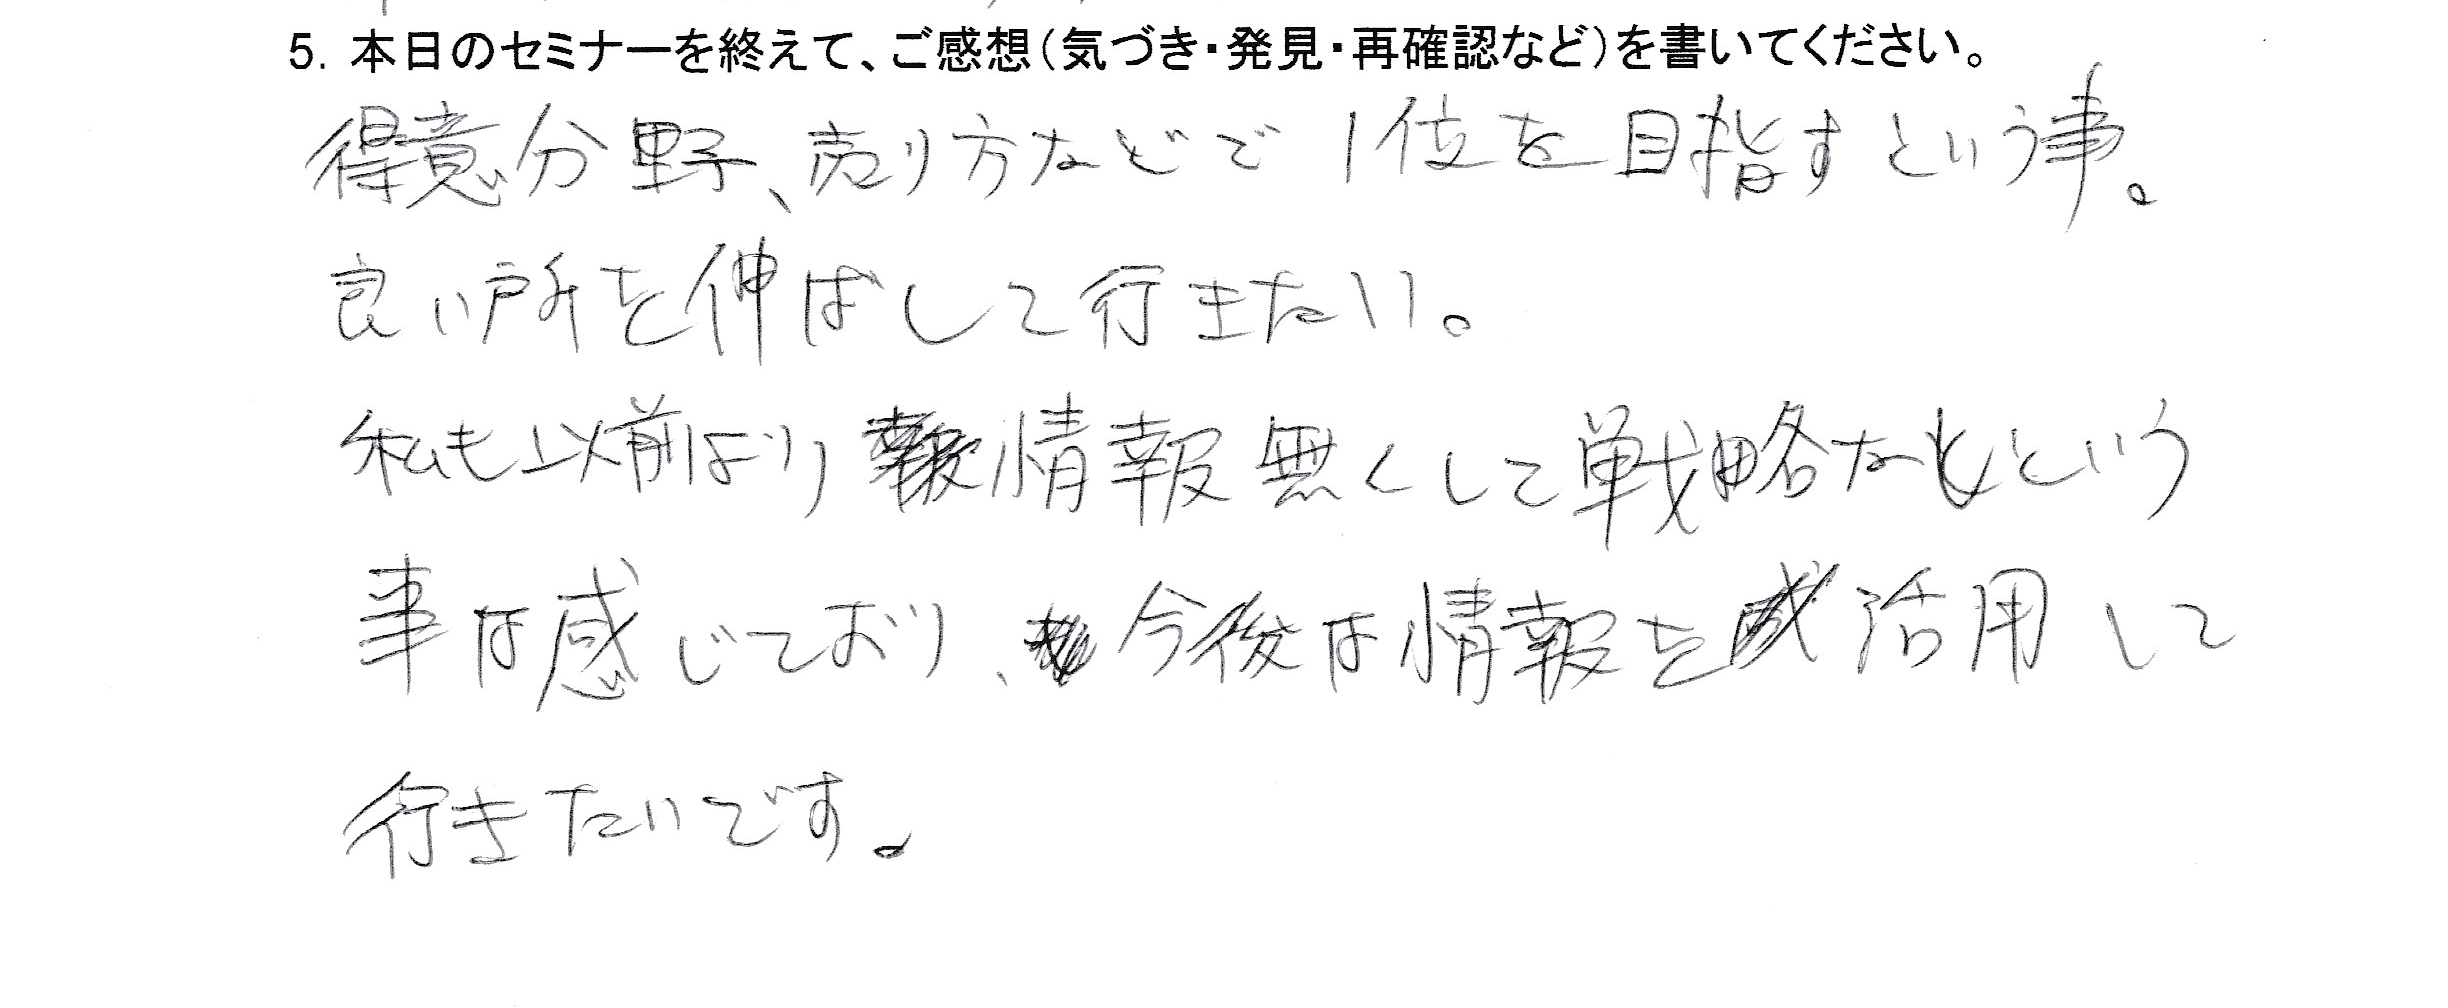 5. 本日のセミナーを終えて、ご感想(気づき・発見・再確認など)を書いてください。
得意分野、売り方などで1位を目指すという事。
良い所を伸ばして行きたい。
私も以前より情報無くして戦略なしという
事は感じており、今後は情報を活用して
行きたいです。